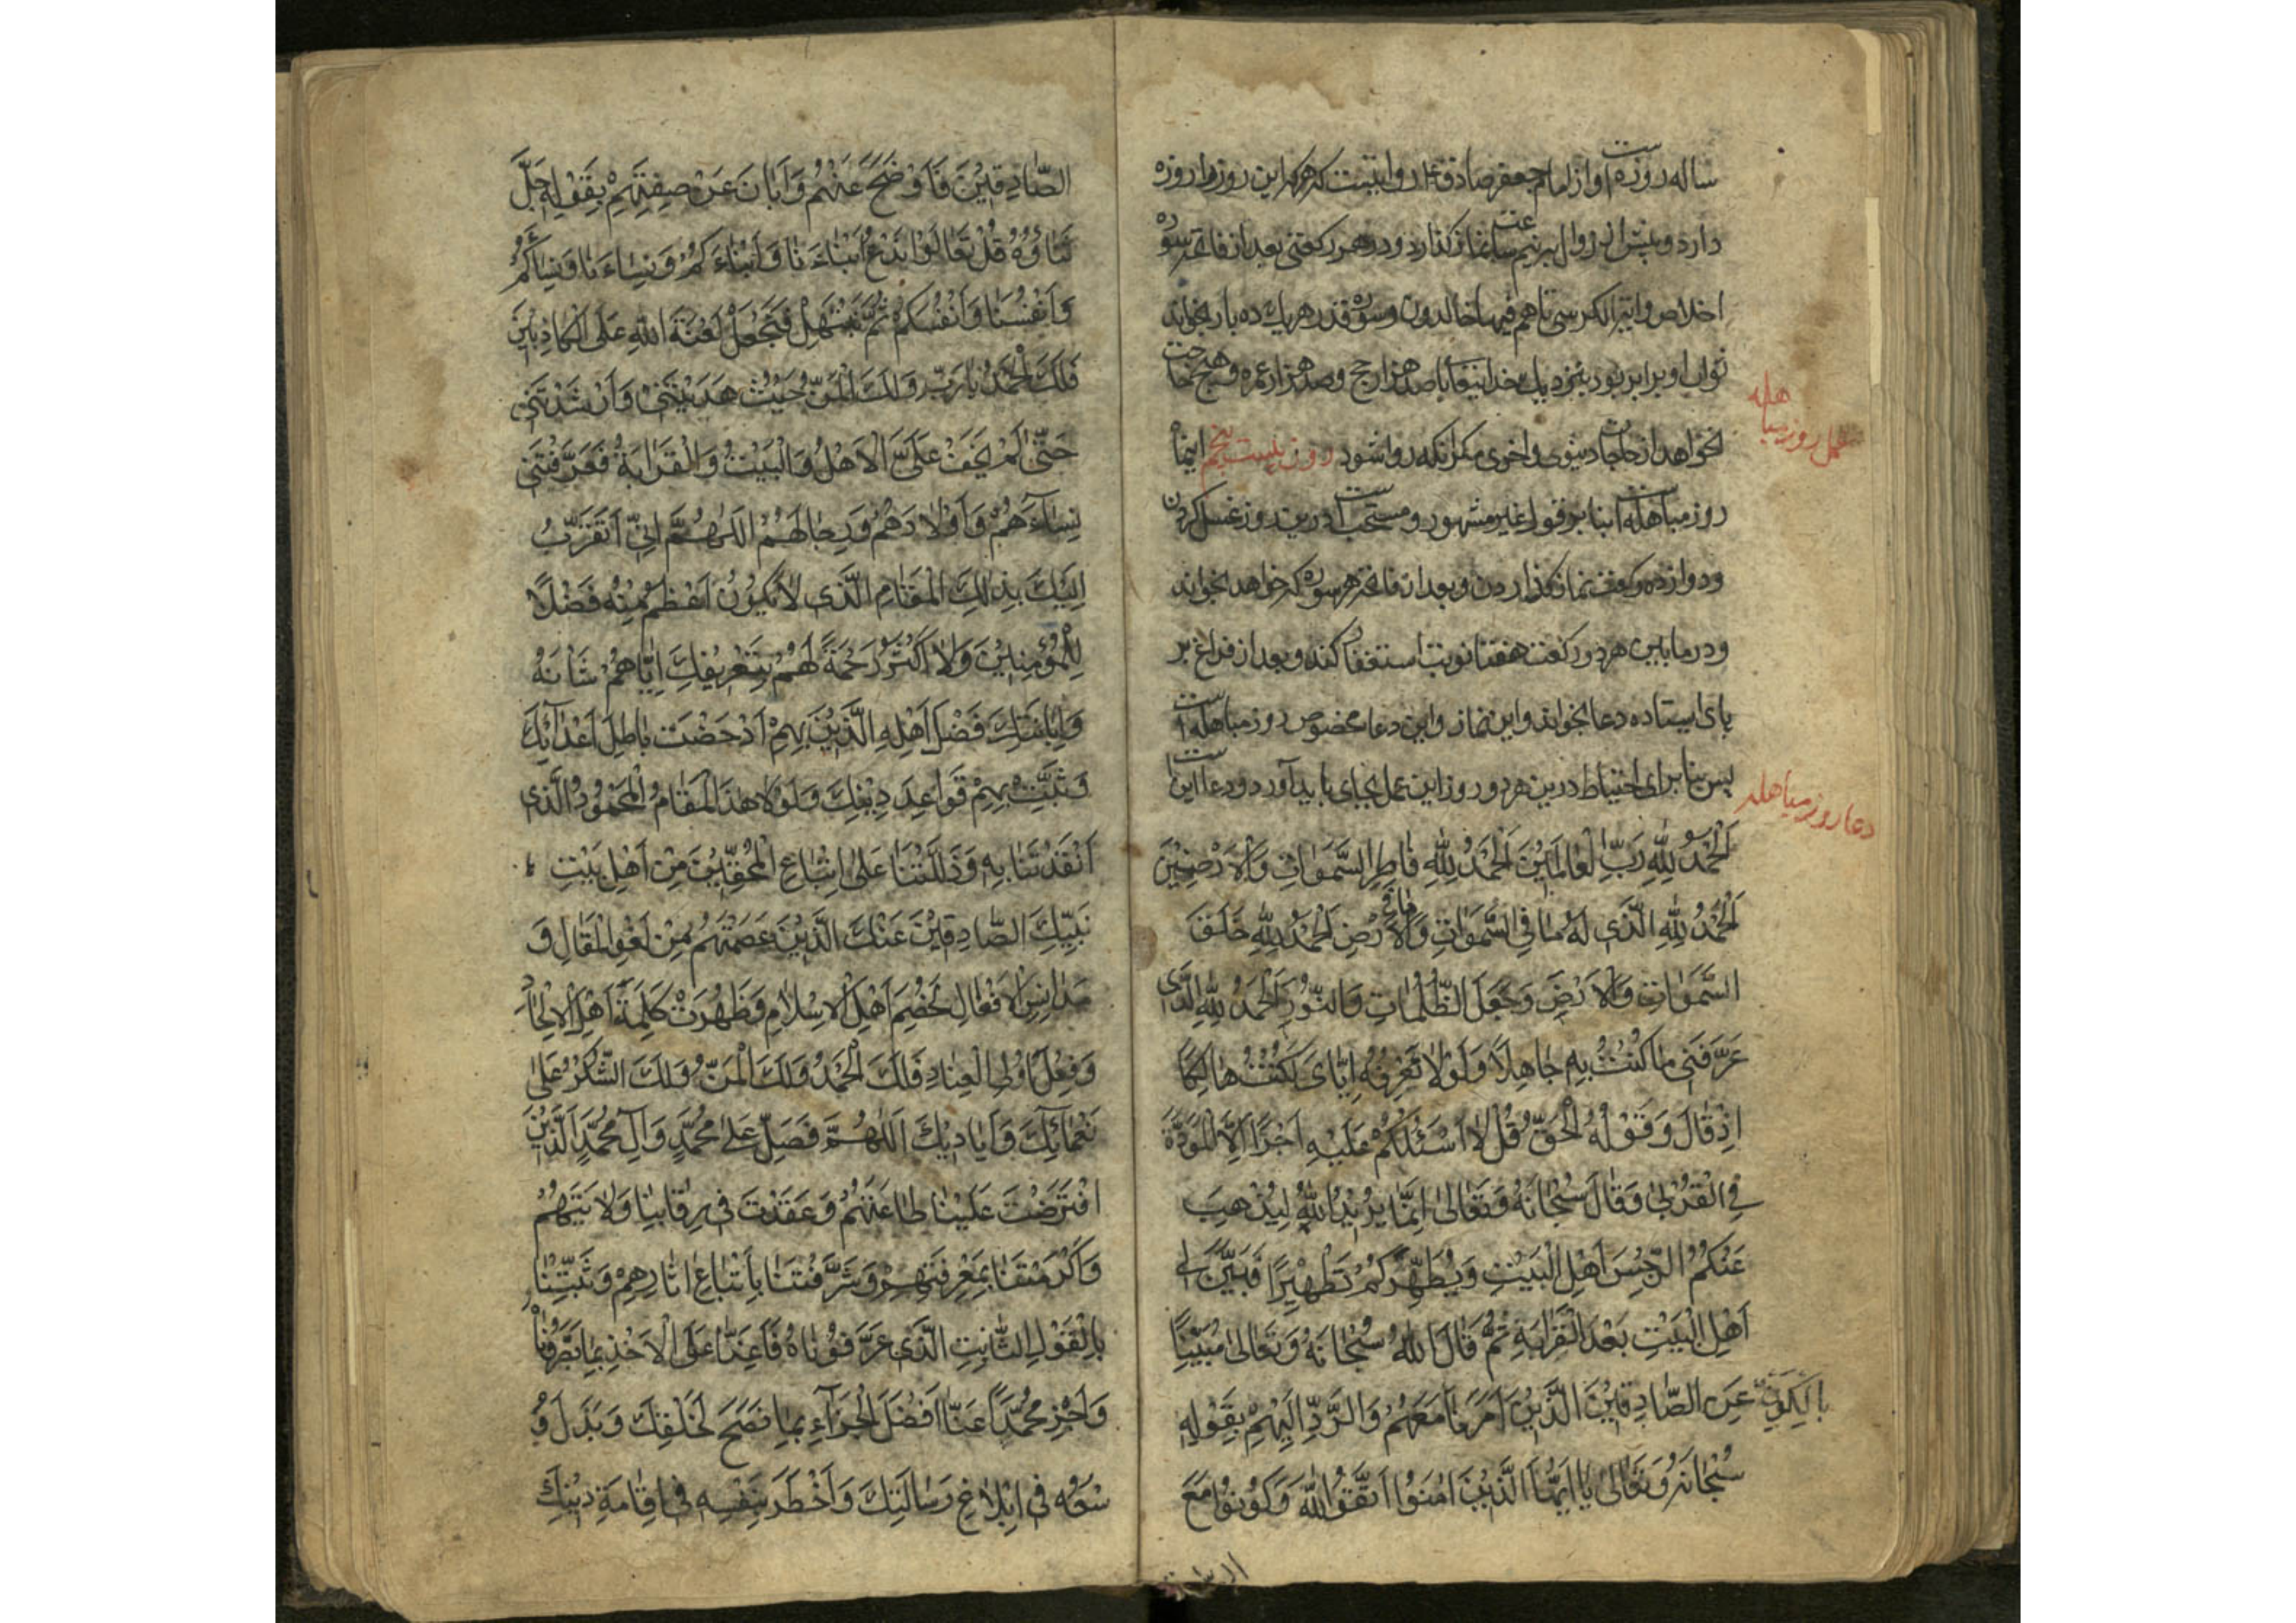 ساله روزه است و از امام جعفر صادق ع روایتست که هر که این روز را روزه
دارد و پیش از زوال بنیم ساعت نماز گذارد و در هر رکعتی بعد از فاتحه سوره
اخلاص و آیة الکرسی تا هم فیها خالدون و سوره قدر هر یك ده بار بخواند
ثواب او برابر بود بنزدیك خدایتعالی با صد هزار حج و صد هزار عمره و هیچ حاجت
نخواهد از حاجات دنیوی و اخروی مگر آنکه روا شود روز بیست پنجم ایضاً
عمل روز مباهله
روز مباهله است بنا بر قول غیر مشهور و مستحب است درین روز غسل کردن
و دوازده رکعت نماز گذاردن و بعد از فاتحه هر سوره که خواهد بخواند
و در مابین هر دو رکعت هفتاد نوبت استغفار کند و بعد از فراغ بر
پای ایستاده دعا بخواند و این نماز و این دعا مخصوص روز مباهله است
پس بنا برای احتیاط درین هر دو روز این عمل بجای باید آورد و دعا این است
دعا روز مباهله
اَلْحَمْدُ لِلّٰهِ رَبِّ الْعَالَمِیْنَ اَلْحَمْدُ لِلّٰهِ فَاطِرِ السَّمٰوَاتِ وَالْاَرَضِیْنَ
اَلْحَمْدُ لِلّٰهِ الَّذِی لَهُ مَا فِی السَّمٰوَاتِ وَمَا فِی الْاَرْضِ اَلْحَمْدُ لِلّٰهِ خَلَقَ
السَّمٰوَاتِ وَالْاَرْضَ وَجَعَلَ الظُّلُمَاتِ وَالنُّوْرَ اَلْحَمْدُ لِلّٰهِ الَّذِی
عَرَّفَنِی مَا كُنْتُ بِهِ جَاهِلًا وَلَوْلَا تَعْرِفُهُ اِیَّایَ لَكُنْتُ هَالِكًا
اِذْ قَالَ وَقَوْلُهُ الْحَقُّ قُلْ لَا اَسْئَلُكُمْ عَلَیْهِ اَجْرًا اِلَّا الْمَوَدَّةَ
فِی الْقُرْبٰی وَقَالَ سُبْحَانَهُ وَتَعَالٰی اِنَّمَا یُرِیْدُ اللّٰهُ لِیُذْهِبَ
عَنْكُمُ الرِّجْسَ اَهْلَ الْبَیْتِ وَیُطَهِّرَكُمْ تَطْهِیْرًا فَبَیَّنَ لِی
اَهْلَ الْبَیْتِ بَعْدَ الْقَرَابَةِ ثُمَّ قَالَ اللّٰهُ سُبْحَانَهُ وَتَعَالٰی مُبَیِّنًا
عَنِ الصَّادِقِیْنَ الَّذِیْنَ اَمَرَنَا مَعَهُمْ وَالرَّدِّ اِلَیْهِمْ بِقَوْلِهِ
سُبْحَانَهُ وَتَعَالٰی یَا اَیُّهَا الَّذِیْنَ اٰمَنُوا اتَّقُوا اللّٰهَ وَكُوْنُوْا مَعَ
الصَّادِقِیْنَ فَاَوْضَحَ عَنْهُمْ وَاَبَانَ عَنْ صِفَتِهِمْ بِقَوْلِهِ جَلَّ
ثَنَاؤُهُ قُلْ تَعَالَوْا نَدْعُ اَبْنَاءَنَا وَاَبْنَاءَكُمْ وَنِسَاءَنَا وَنِسَاءَكُمْ
وَاَنْفُسَنَا وَاَنْفُسَكُمْ ثُمَّ نَبْتَهِلْ فَنَجْعَلْ لَعْنَةَ اللّٰهِ عَلَی الْكَاذِبِیْنَ
فَلَكَ الْحَمْدُ یَا رَبِّ وَلَكَ الْمَنُّ حَیْثُ هَدَیْتَنِی وَاَرْشَدْتَنِی
حَتّٰی لَمْ یَخْفَ عَلَیَّ الْاَهْلُ وَالْبَیْتُ وَالْقَرَابَةُ فَعَرَّفْتَنِی
نِسَاءَهُمْ وَاَوْلَادَهُمْ وَرِجَالَهُمْ اَللّٰهُمَّ اِنِّی اَتَقَرَّبُ
اِلَیْكَ بِذٰلِكَ الْمَقَامِ الَّذِی لَا یَكُوْنُ اَعْظَمُ مِنْهُ فَضْلًا
لِلْمُؤْمِنِیْنَ وَلَا اَكْثَرُ رَحْمَةً لَهُمْ بِتَعْرِیْفِكَ اِیَّاهُمْ شَأْنَهُ
وَاِبَانَتِكَ فَضْلَ اَهْلِهِ الَّذِیْنَ بِهِمْ اَدْحَضْتَ بَاطِلَ اَعْدَائِكَ
وَثَبَّتَّ بِهِمْ قَوَاعِدَ دِیْنِكَ وَلَوْلَا هٰذَا الْمَقَامُ الْمَحْمُوْدُ الَّذِی
اَنْقَذْتَنَا بِهِ وَدَلَلْتَنَا عَلٰی اتِّبَاعِ الْمُحِقِّیْنَ مِنْ اَهْلِ بَیْتِ
نَبِیِّكَ الصَّادِقِیْنَ عَنْكَ الَّذِیْنَ عَصَمْتَهُمْ مِنْ لَغْوِ الْمَقَالِ وَ
مَدَانِسِ الْاَفْعَالِ لَخُصِمَ اَهْلُ الْاِسْلَامِ وَظَهَرَتْ كَلِمَةُ اَهْلِ الْاِلْحَادِ
وَفِعْلُ اُولِی الْعِنَادِ فَلَكَ الْحَمْدُ وَلَكَ الْمَنُّ وَلَكَ الشُّكْرُ عَلٰی
نَعْمَائِكَ وَاَیَادِیْكَ اَللّٰهُمَّ فَصَلِّ عَلٰی مُحَمَّدٍ وَآلِ مُحَمَّدٍ الَّذِیْنَ
افْتَرَضْتَ عَلَیْنَا طَاعَتَهُمْ وَعَقَدْتَ فِی رِقَابِنَا وَلَایَتَهُمْ
وَاَكْرَمْتَنَا بِمَعْرِفَتِهِمْ وَشَرَّفْتَنَا بِاتِّبَاعِ اٰثَارِهِمْ وَثَبَّتَّنَا
بِالْقَوْلِ الثَّابِتِ الَّذِی عَرَّفُوْنَاهُ فَاَعِنَّا عَلَی الْاَخْذِ بِمَا بَصَّرُوْنَاهُ
وَاَجْزِ مُحَمَّدًا عَنَّا اَفْضَلَ الْجَزَاءِ بِمَا نَصَحَ لِخَلْقِكَ وَبَذَلَ وُ
سْعَهُ فِی اِبْلَاغِ رِسَالَتِكَ وَاَخْطَرَ بِنَفْسِهِ فِی اِقَامَةِ دِیْنِكَ